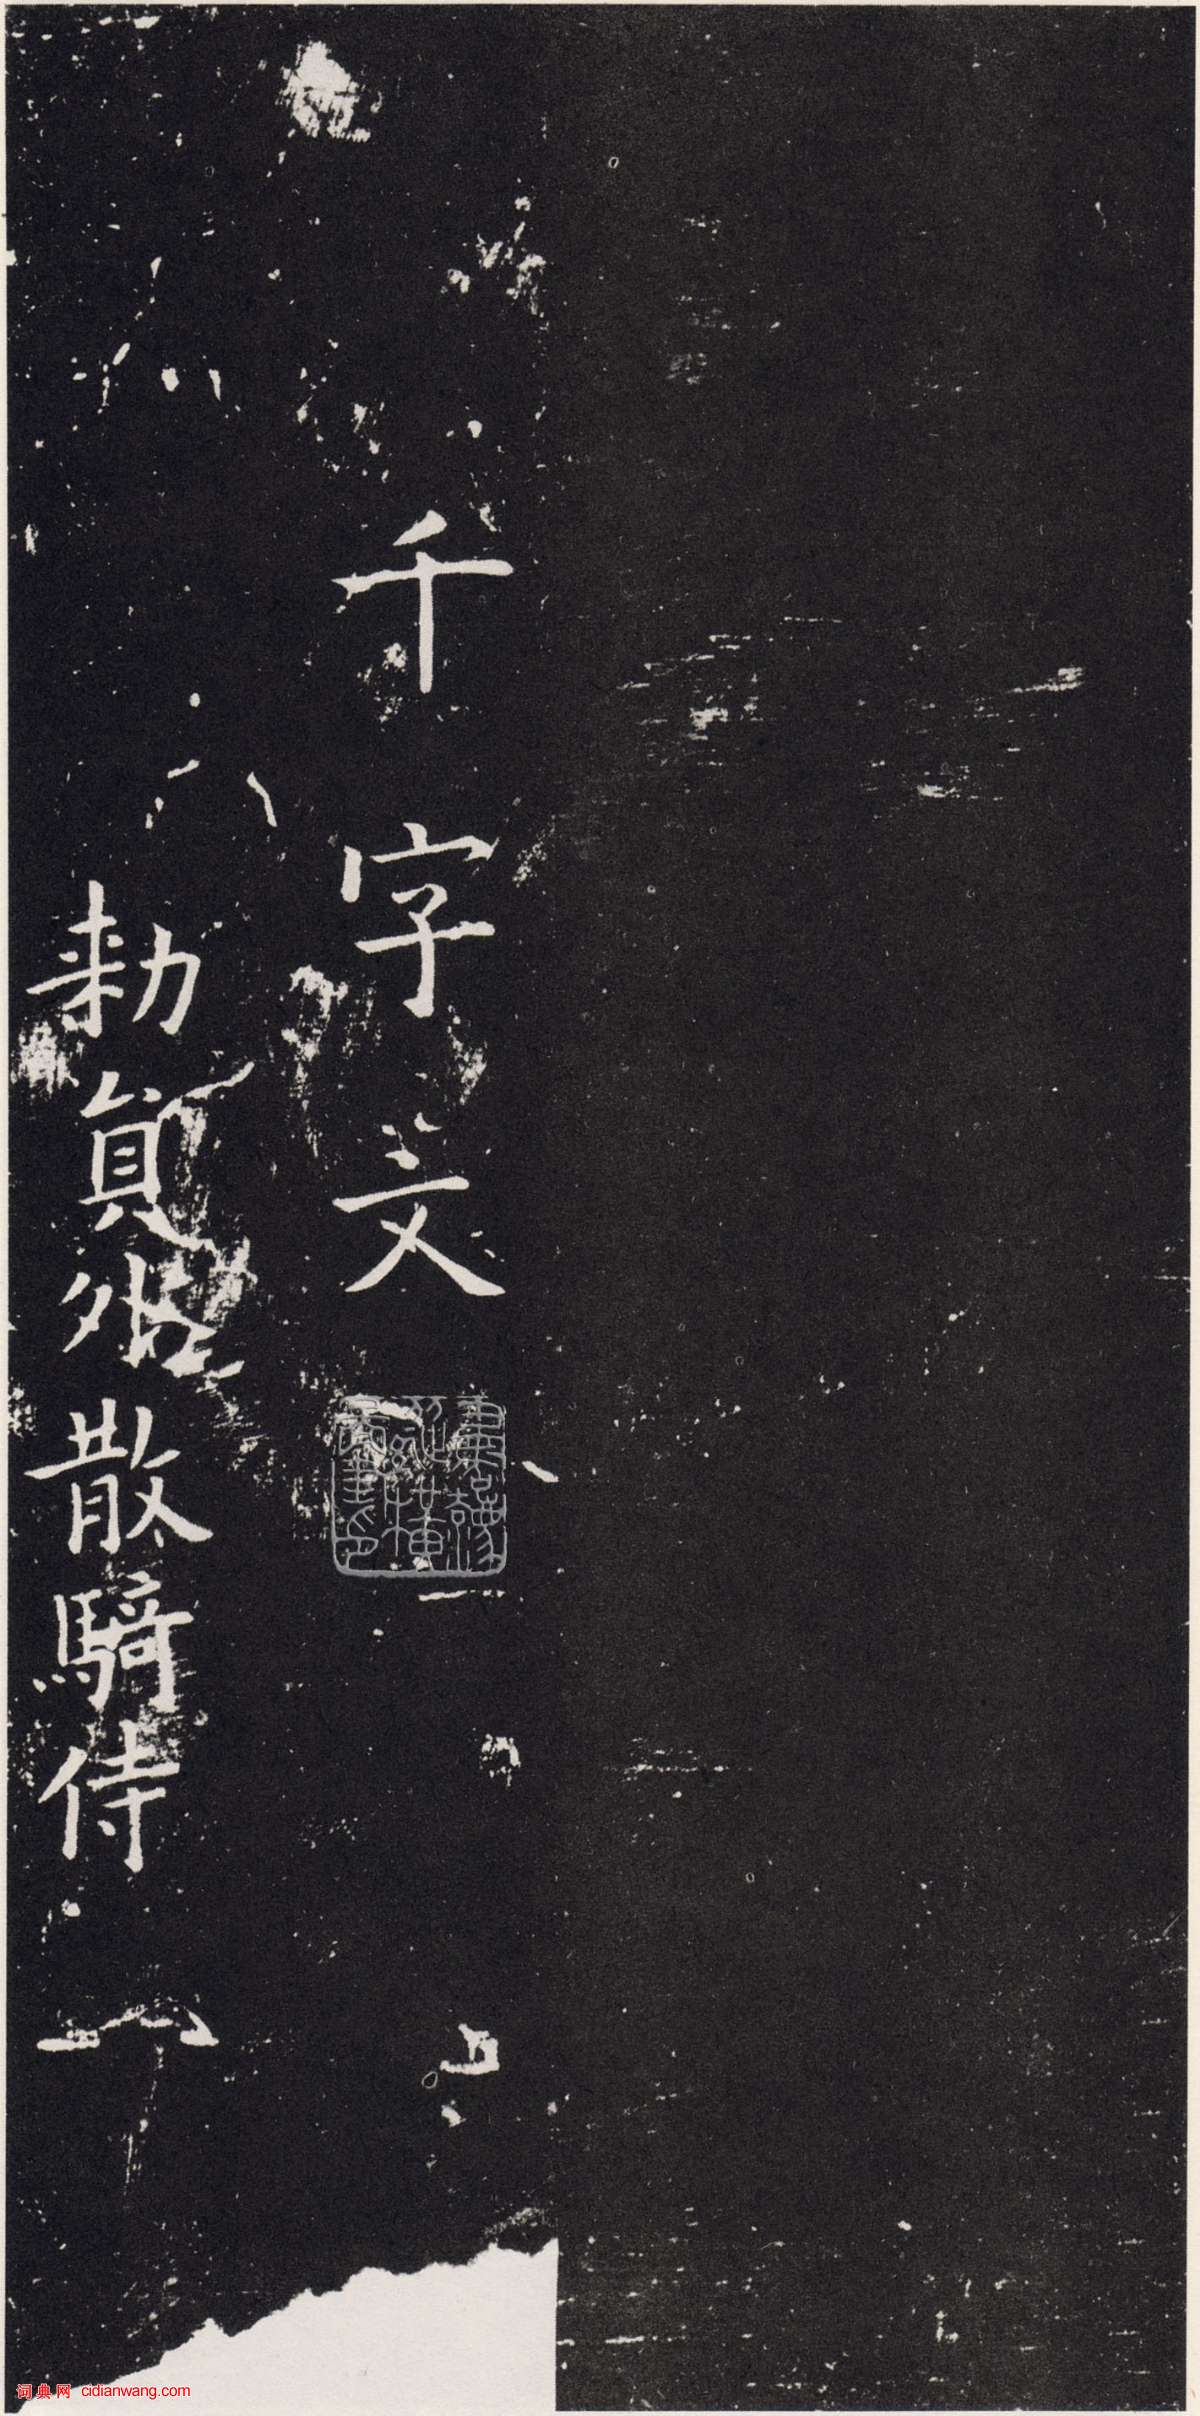 千字文
勑員外散騎侍
词典网 cidianwang.com